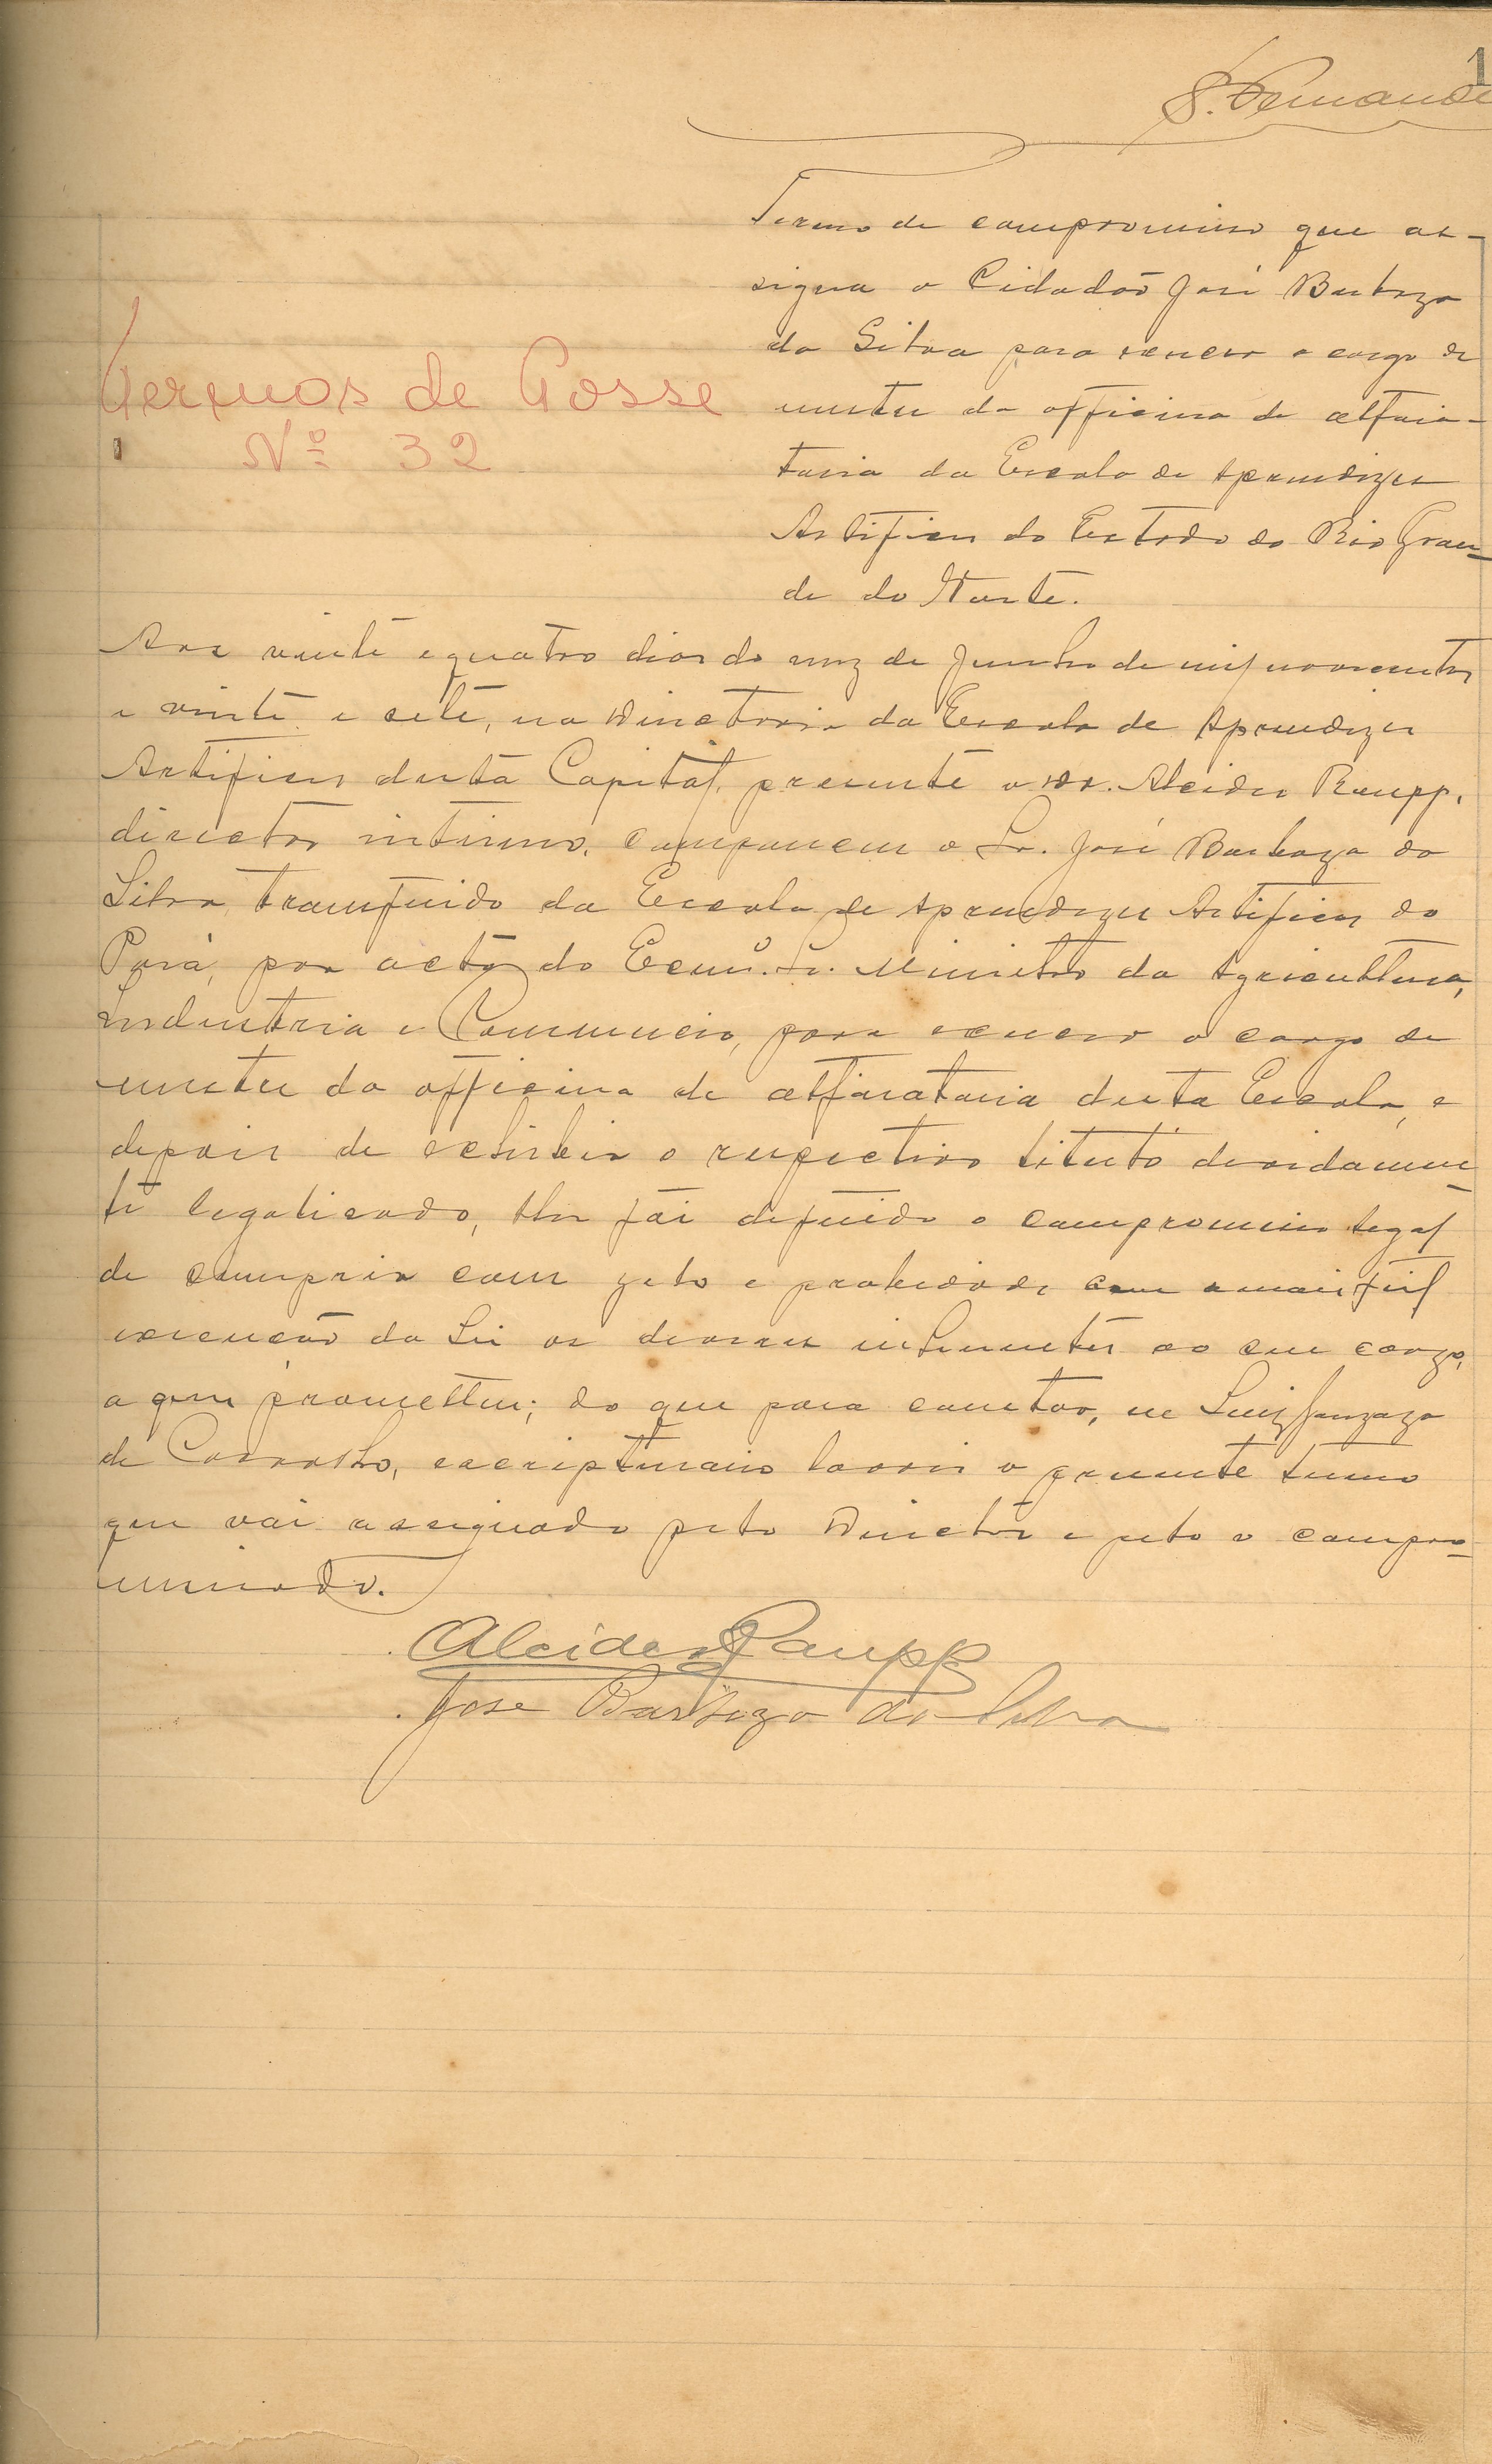 1
S. Fernande
Termo de compromisso que as-
signa o Cidadão José Barboza
da Silva para exercer o cargo de
mestre da officina de alfaia-
taria da Escola de Aprendizes
Artifices do Estado do Rio Gran-
de do Norte.
Termos de Posse
Nº 32
Aos vinte e quatro dias do mez de Junho de mil novecentos
e vinte e sete, na Directoria da Escola de Aprendizes
Artifices desta Capital, presente o Dr. Alcides Raupp,
director interino, compareceu o Sr. José Barboza da
Silva, transferido da Escola de Aprendizes Artifices do
Pará, por acto do Exmº. Sr. Ministro da Agricultura,
Industria e Commercio, para exercer o cargo de
mestre da officina de alfaiataria desta Escola, e
depois de exhibir o respectivo titulo devidamen-
te legalisado, lhe foi deferido o compromisso legal
de cumprir com zelo e probidade com a mais fiel
execução da Lei os deveres inherentes ao seu cargo,
o que prometteu; do que para constar, eu Luiz Gonzaga
de Carvalho, escripturario lavrei o presente termo
que vai assignado pelo Director e pelo o compro-
missado.
Alcides Raupp
José Barboza da Silva